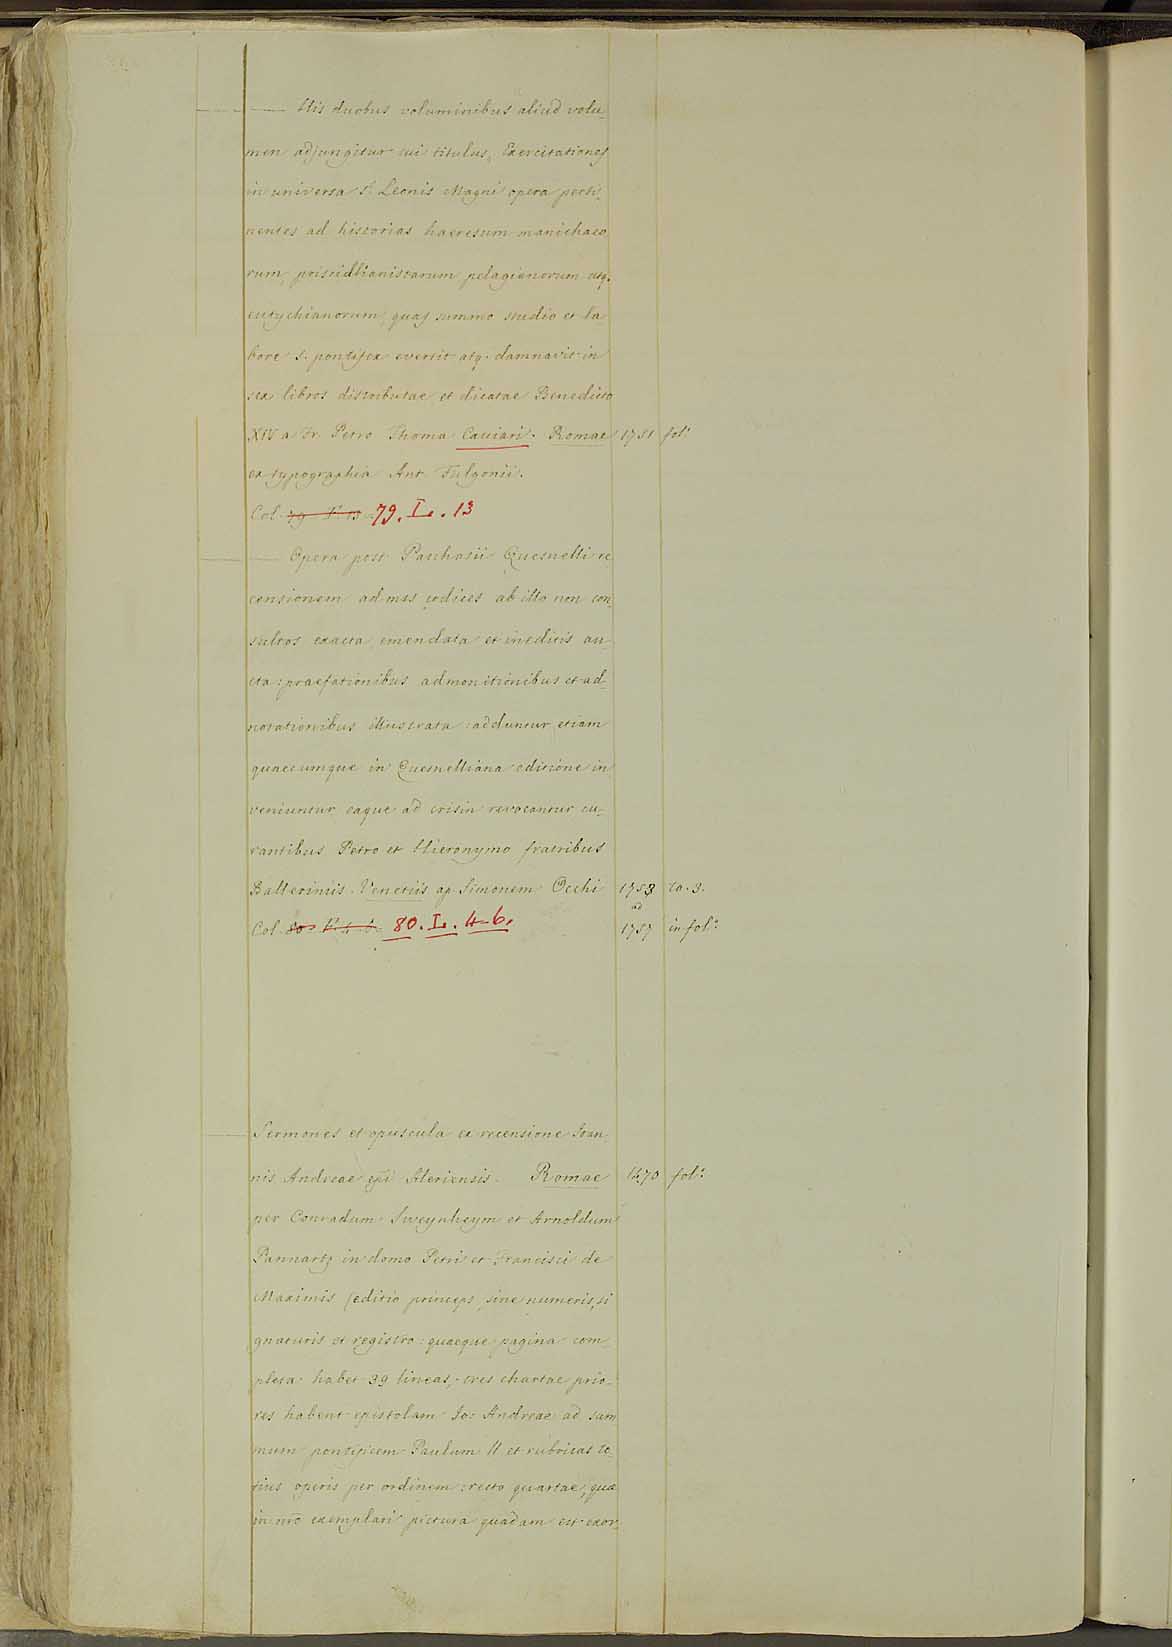 —— His duobus voluminibus aliud volu
men adjungitur cui titulus, Exercitationes
in universa S. Leonis Magni opera perti,
nentes ad historias haeresum manichaeo,
rum, priscillianistarum pelagianorum atq.
eutychianorum, quas summo studio et la
bore S. pontifex evertit atq. damnavit in
sex libros distributae et dicatae Benedicto
XIV a Fr. Petro Thoma Cacciari. Romae 1751 fol.
ex typographia Ant. Fulgonii.
Col. 79. L. 13
—— Opera post Paschasii Quesnelli re
censionem ad mss codices ab illo non con,
sultos exacta, emendata et ineditis au,
cta: praefationibus admonitionibus et ad-
notationibus illustrata: adduntur etiam
quaecumque in Quesnelliana editione in
veniuntur eaque ad crisin revocantur cu,
rantibus Petro et Hieronymo fratribus
Balleriniis. Venetiis ap. Simonem Occhi 1753 to. 3.
ad
Col. 80. L. 4-6. 1757 in fol:
—— Sermones et opuscula ex recensione Joan,
nis Andreae epi Aleriensis. Romae 1470 fol:
per Conradum Sweynheym et Arnoldum
Pannartz in domo Petri et Francisci de
Maximis (editio princeps, sine numeris, si
gnaturis et registro: quaeque pagina com,
pleta habet 39 lineas, tres chartae prio-
res habent epistolam Jo: Andreae ad sum
mum pontificem Paulum II et rubricas to-
tius operis per ordinem: recto quartae, quae
in nro exemplari pictura quadam est exor,